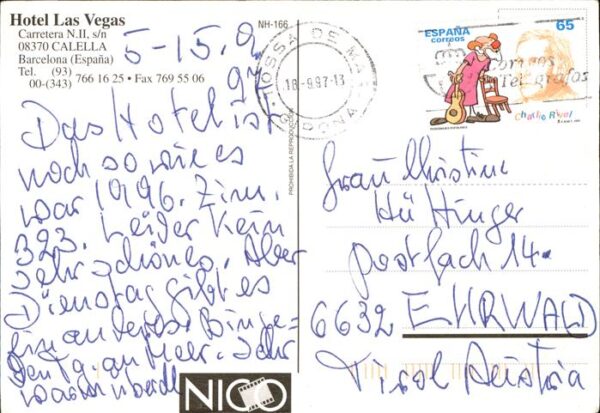 Hotel Las Vegas
Carretera N.II, s/n
08370 CALELLA
Barcelona (España)
Tel. (93) 766 16 25 • Fax 769 55 06
00-(343)
NH-166
PROHIBIDA LA REPRODUCCION
5-15.9.
97
Das Hotel ist
noch so wie es
war 1996. Zim.
323. Leider kein
sehr schönes. Aber
Dienstag gibt es
ein anderes. Bin ge-
am Meer. Sehr
NICO
TOSSA DE MAR
18-9.97-13
ESPAÑA
correos
65
Correos
Telégrafos
Charlie Rivel
Frau Christine
Hüttinger
Postfach 14-
6632 EHRWALD
Tirol Austria